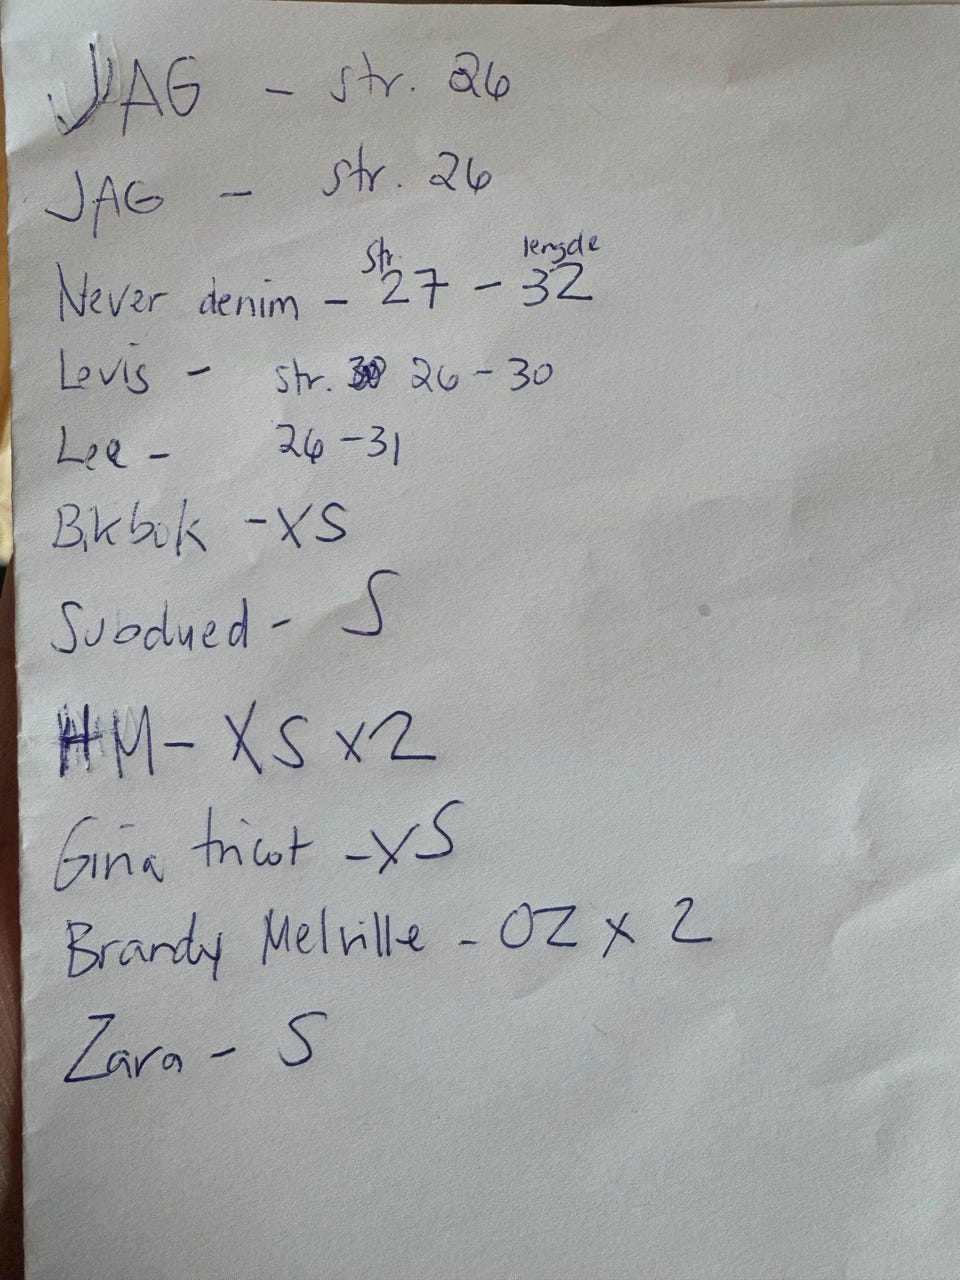 JAG - str. 26
JAG - str. 26
str. lengde
Never denim - 27 - 32
Levis - str. 26 - 30
Lee - 26 - 31
Bikbok - XS
Subdued - S
HM - XS x2
Gina tricot - XS
Brandy Melville - OZ x 2
Zara - S